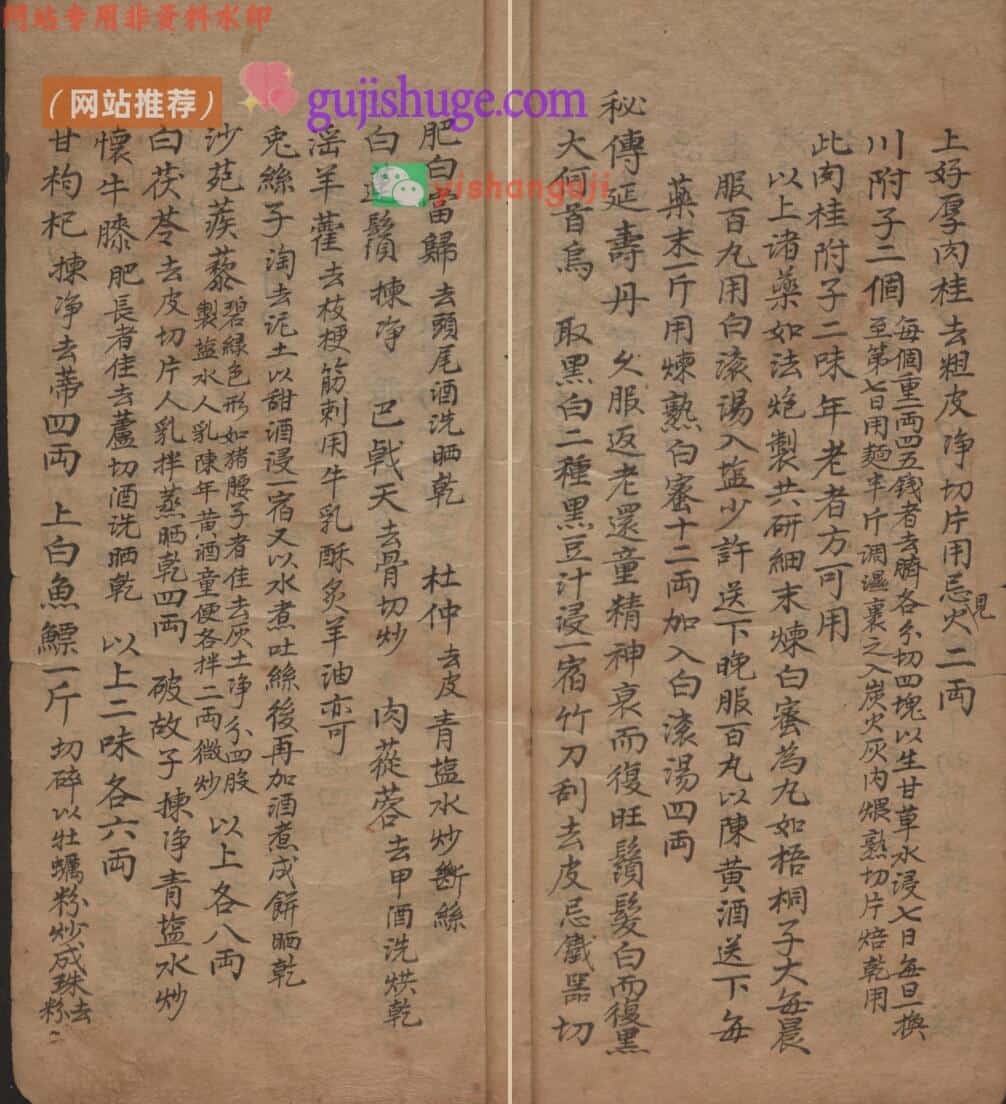 网站专用非资料水印
（网站推荐）
gujishuge.com
yishanguji
上好厚肉桂 去粗皮净切片用忌見火二両
川附子二個 每個重一両四五錢者去臍各分切四塊以生甘草水浸七日每日一換
至第七日用麵半斤調濕裹之入炭火灰内煨熟切片焙乾用
此肉桂附子二味年老者方可用
以上诸藥如法炮製共研細末煉白蜜為九如梧桐子大每晨
服百九用白滾湯入塩少許送下晚服百丸以陳黄酒送下每
藥末一斤用煉熟白蜜十二両加入白滾湯四両
秘傳延壽丹 久服返老還童精神衰而復旺鬚髮白而復黒
大何首烏 取黒白二種黒豆汁浸一宿竹刀刮去皮忌鐵器切
肥白當歸 去頭尾酒洗晒乾 杜仲 去皮青塩水炒斷絲
白 鬚 揀净 巴戟天 去骨切炒 肉蓯蓉 去甲酒洗烘乾
淫羊藿 去枝梗筋刺用牛乳酥炙羊油亦可
兎絲子 淘去泥土以甜酒浸一宿又以水煮吐絲後再加酒煮成餅晒乾
沙苑蒺藜 碧綠色形如猪腰子者佳去灰土净分四股
製塩水人乳陳年黄酒童便各拌二両微炒 以上各八両
白茯苓 去皮切片人乳拌蒸晒乾四両 破故子 揀净青塩水炒
懷牛膝 肥長者佳去蘆切酒洗晒乾 以上二味各六両
甘枸杞 揀净去蒂四両 上白魚鰾一斤 切碎以牡蠣粉炒成珠去粉